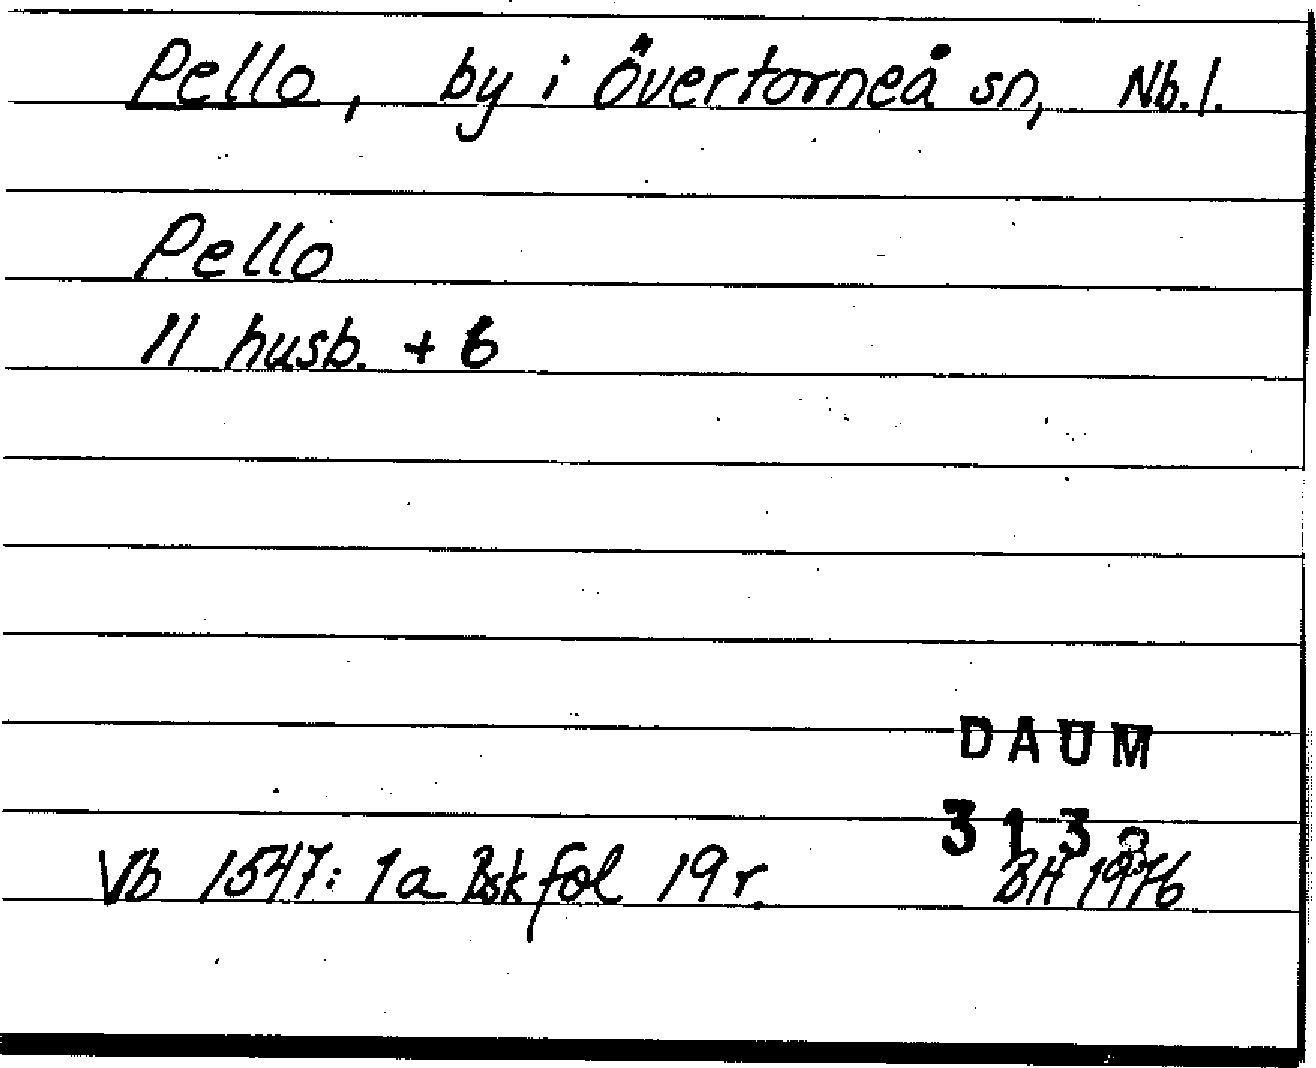 Pello, by i Övertorneå sn, Nb.l.
Pello
11 husb. + 6
DAUM
313
Vb 1547: 1a Bsk fol 19r. BH 1976